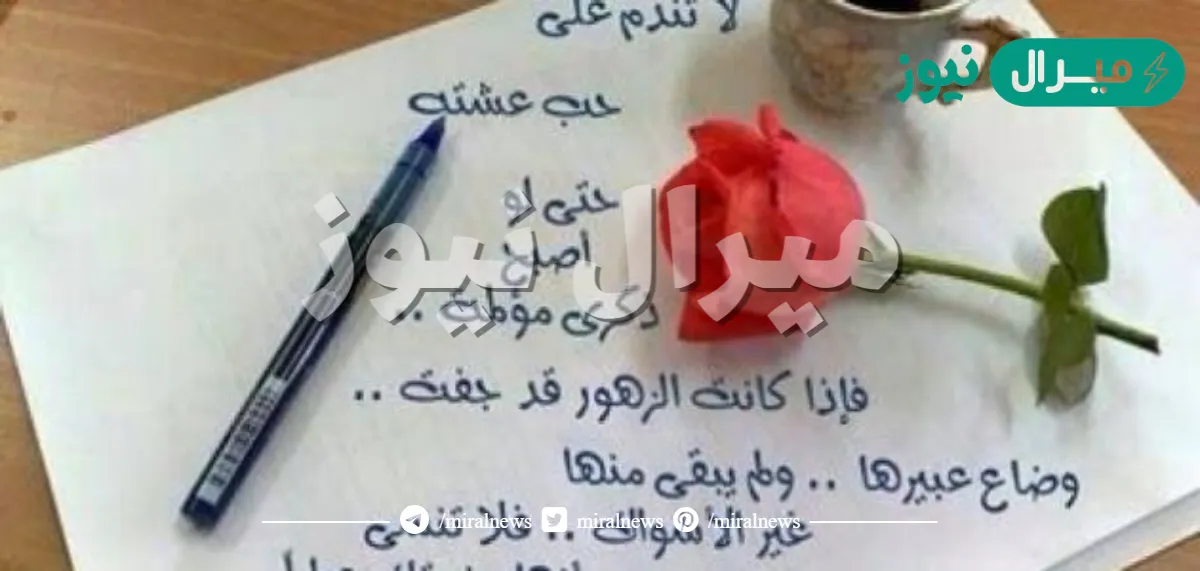 لا تندم على
ميرال نيوز
حب عشته
حتى لو
اصبح
ميرال نيوز
ذكرى مؤلمة ..
فإذا كانت الزهور قد جفت ..
وضاع عبيرها .. ولم يبقى منها
غير الاشواك .. فلا تنسى
/miralnews /miralnews /miralnews